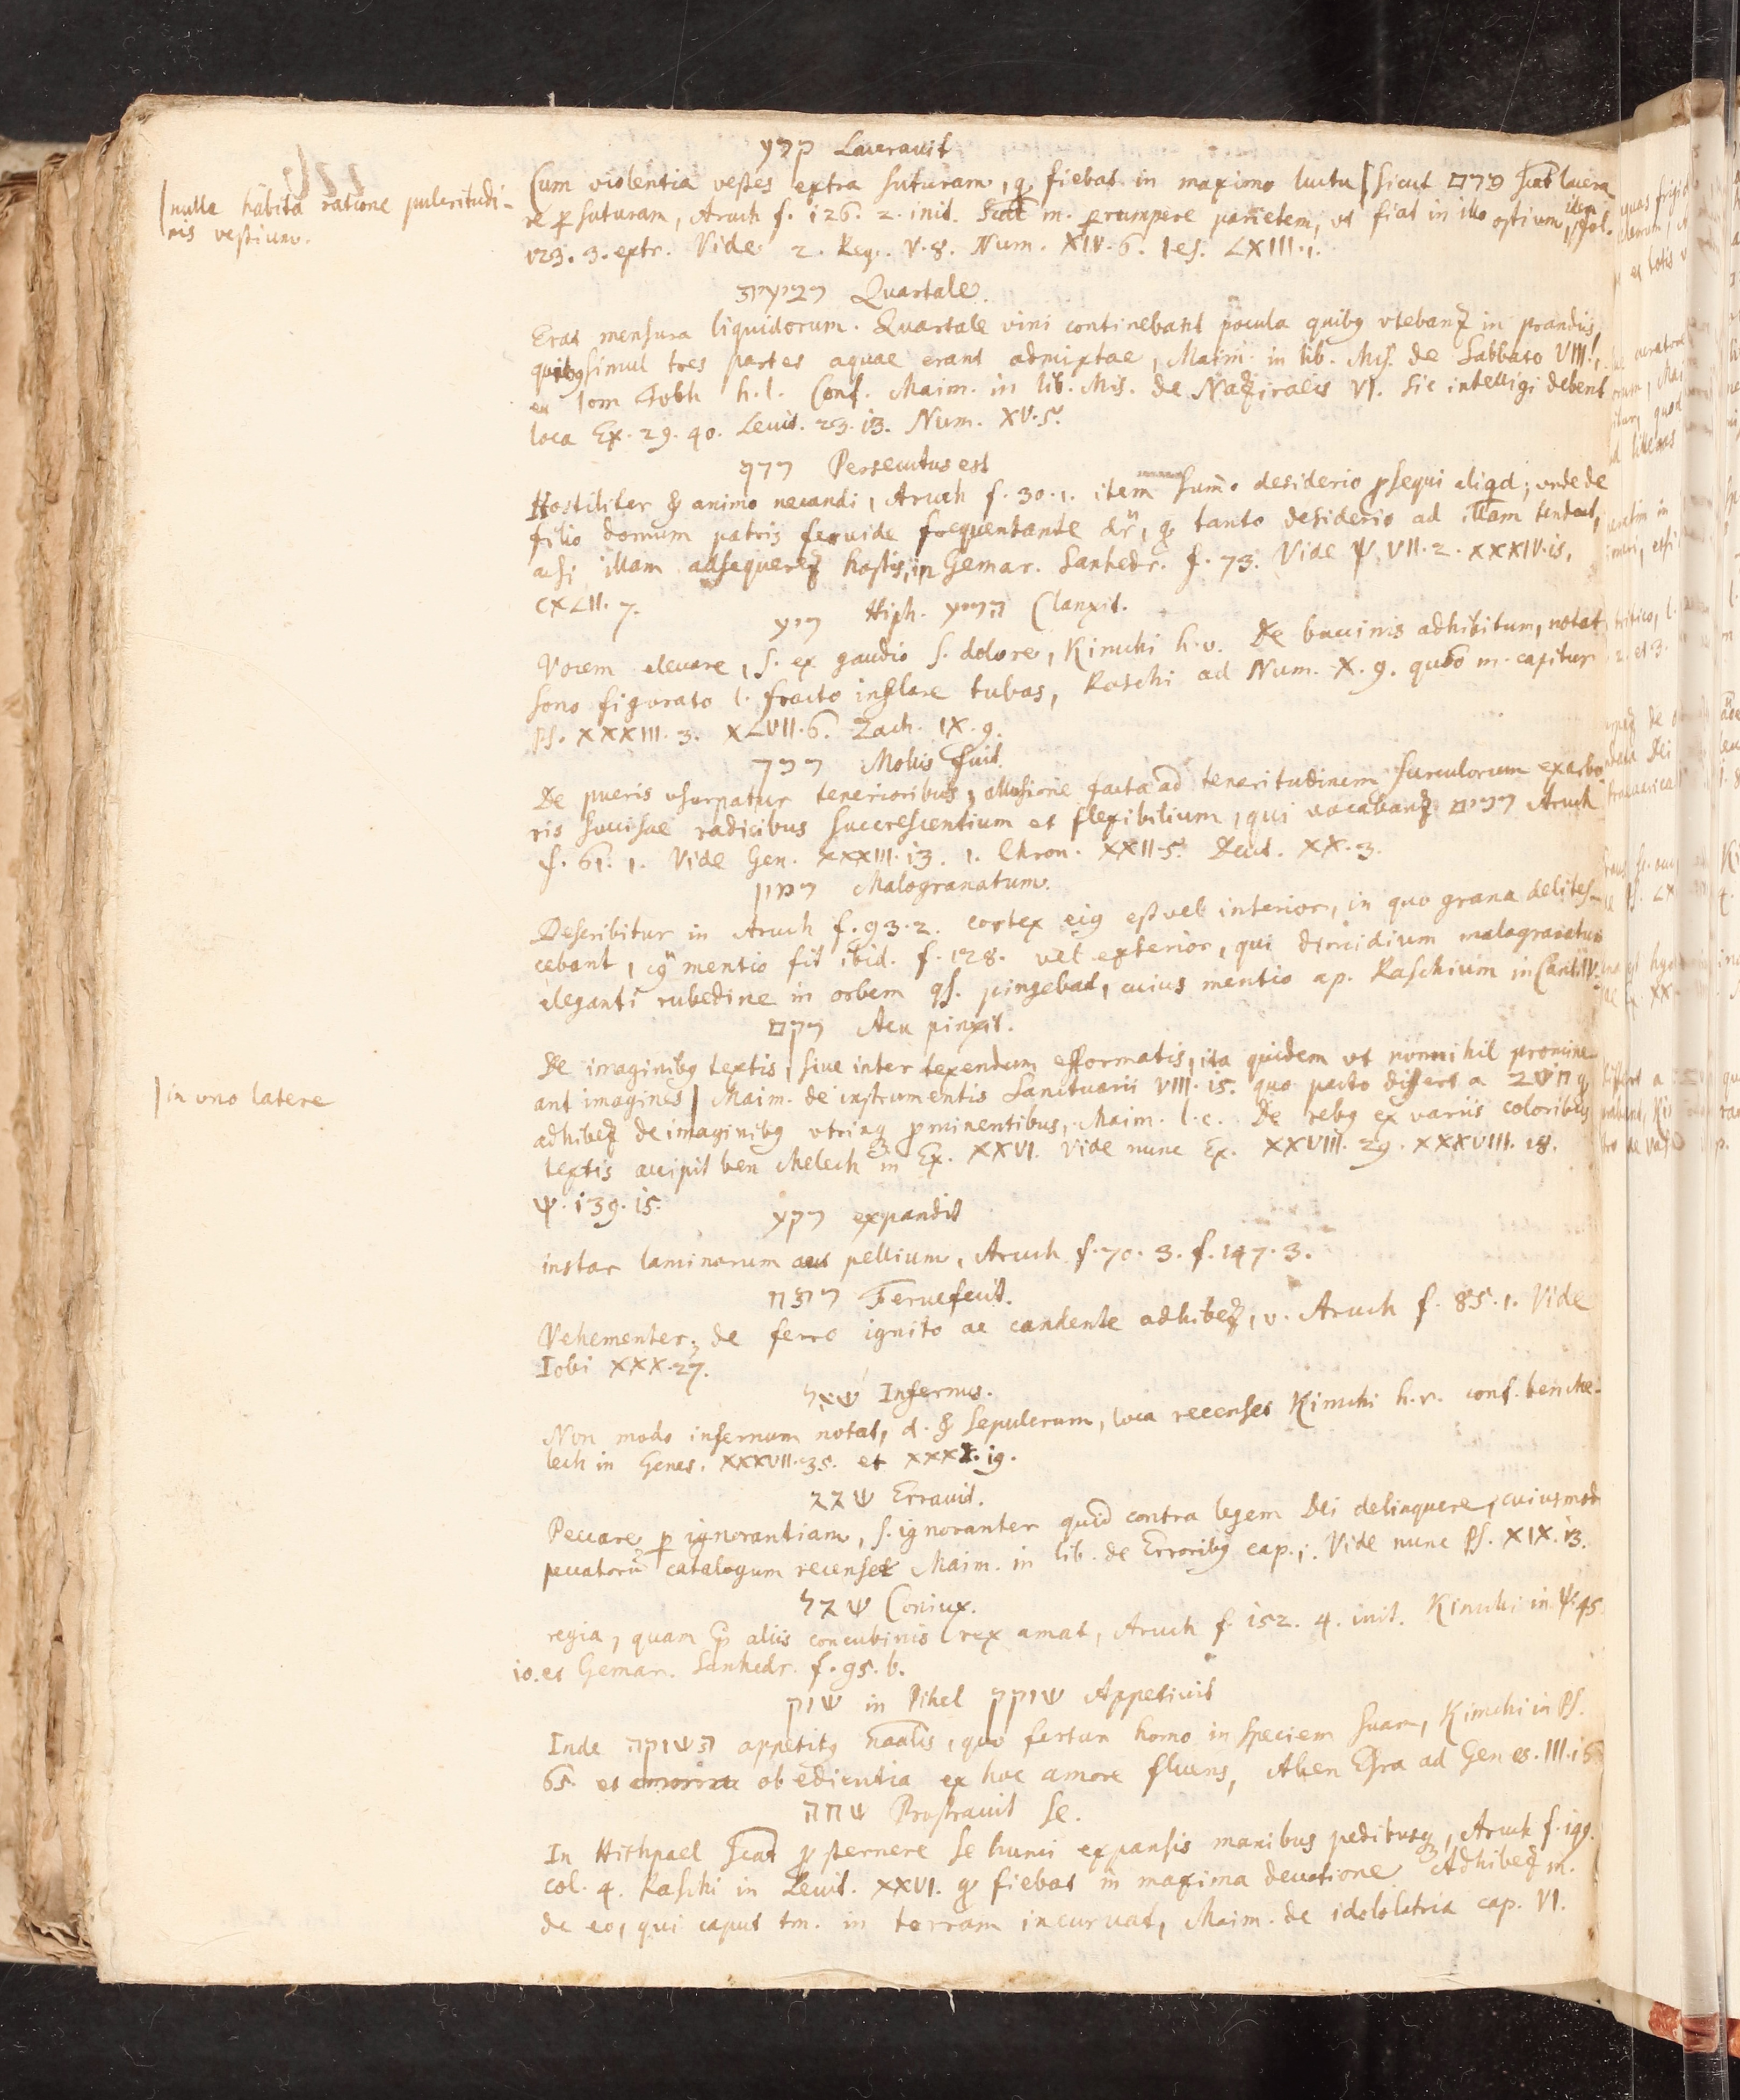 קרע Lacerauit
Cum violentia vestes extra suturam, q fiebat in maximo luctu | sicut פרם scat lacera
| nulla habita ratione pulcritudi-
nis vestium.
re p suturam, Aruch f. 126. 2. init. Scat m. prumpere parietem, vt fiat in illo ostium, item fol.
123. 3. extr. Vide 2. Reg. V. 8. Num. XIV. 6. Ies. LXIII. 1.
רביעית Quartale.
Erat mensura liquidorum. Quartale vini continebant pocula quibq vtebant in prandiis,
quibq simul tres partes aquae erant admixtae, Maim. in lib. Mis. de Sabbato VIII.1.
et Iom Tobh h. l. Conf. Maim. in lib. Mis. de Naziraeis VI. Sic intelligi debent
loca Ex. 29. 40. Leuit. 23. 13. Num. XV. 5.
רדף Persecutus est
Hostiliter & animo necandi, Aruch f. 30. 1. item summo desiderio psequi aliqd; vnde de
filio domum patris feruide frequentante dr, q tanto desiderio ad illam tendat,
ac si illam adsequeret hostis, in Gemar. Sanhedr. f. 73. Vide ψ. VII. 2. XXXIV. 15.
CXLII. 7.
רוע Hiph. הריע Clanxit.
Vocem eleuare, s. ex gaudio s. dolore, Kimchi h. v. De buccinis adhibitum, notat
sono figurato l. fracto inflare tubas, Raschi ad Num. X. 9. quo m. capitur
Ps. XXXIII. 3. XLVII. 6. Zach. IX. 9.
רכך Mollis fuit.
De pueris vsurpatur tenerioribus, allusione facta ad teneritudinem surculorum ex arbo
ris succisae radicibus succrescentium et flexibilium, qui vocabant רכים Aruch
f. 61. 1. Vide Gen. XXXIII. 13. 1. Chron. XXII. 5. Deut. XX. 3.
רמון Malogranatum.
Describitur in Aruch f. 93. 2. cortex eiq est vel interior, in quo grana delites-
cebant, cq mentio fit ibid. f. 128. vel exterior, qui dimidium malogranatum
eleganti rubedine in orbem qs. pingebat, cuius mentio ap. Raschium in Cant. IV.
רקם Acu pinxit.
De imaginibq textis, siue inter texendum efformatis, ita quidem vt nonnihil promine-
| in vno latere
ant imagines | Maim. de instrumentis Sanctuarii VIII. 15. quo pacto differt a חשב q
adhibet de imaginibq vtrinq prominentibus, Maim. l. c. De rebq ex variis coloribus
textis accipit ben Melech in Ex. XXVI. Vide nunc Ex. XXVIII. 29. XXXVIII. 18.
ψ. 139. 15.
רקע expandit
instar laminarum aut pellium, Aruch f. 70. 3. f. 147. 3.
רתח Feruefecit.
Vehementer; de ferro ignito ac candente adhibet, v. Aruch f. 85. 1. Vide
Iobi XXX. 27.
שאל Infernus.
Non modo infernum notat, d. & sepulcrum, loca recenset Kimchi h. v. conf. ben Me-
lech in Genes. XXXVII. 35. et XXXX. 19.
שגג Errauit.
Peccare p ignorantiam, s. ignoranter quid contra legem Dei delinquere, cuiusmodi
peccatoru catalogum recenset Maim. in lib. de Erroribq cap. 1. Vide nunc Ps. XIX. 13.
שגל Coniux.
regia, quam p aliis concubinis rex amat, Aruch f. 152. 4. init. Kimchi in ψ. 45.
10. et Gemar. Sanhedr. f. 95. b.
שוק in Pihel שוקק Appetiuit
Inde תשוקה appetitq naalis, quo fertur homo in speciem suam, Kimchi in Ps.
65. et obedientia ex hoc amore fluens, Aben Esra ad Genes. III. 16.
שחה Prostrauit se.
In Hithpael scat p sternere se humi expansis manibus pedibusq, Aruch f. 199.
col. 4. Raschi in Leuit. XXVI. q fiebat in maxima deuotione. Adhibet m.
de eo, qui caput tm. in terram incuruat, Maim. de idololatria cap. VI.